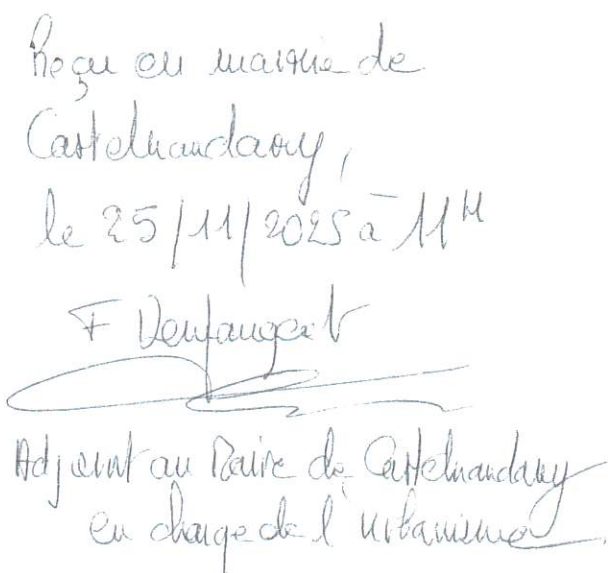 Reçu en mairie de
Castelnaudary,
le 25/11/2025 à 11H
F
Adjoint au Maire de Castelnaudary
en charge de l'urbanisme